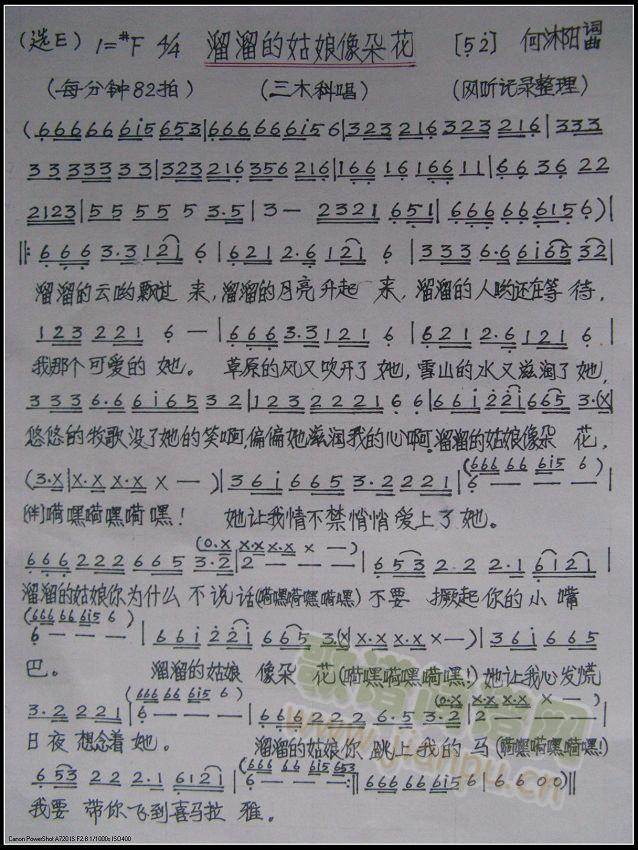 (选E) 1=#F 4/4 溜溜的姑娘像朵花 [5 2] 何沐阳 词曲
(每分钟82拍) (三木科唱) (网听记录整理)
(666666i5 653|666666i5 6|323 216 323 216|333
33 3333 33|323216356 216|166 16166 11|66 36 22
2123|55 55 5 3·5|3— 2321 651|666666156)|
‖:666 3·3 121 6|621 2·6 121 6|333 6·6 6i65 32|
溜溜的云哟飘过 来,溜溜的月亮升起 来,溜溜的人哟还在等 待,
123 221 6 —|666 3·3 121 6|621 2·6 121 6|
我那个可爱的 她。 草原的风又吹开了她,雪山的水又滋润了她,
333 6·6 6i65 32|123 2221 66|66i 22i 665 3·(X|
悠悠的牧歌没了她的笑啊,偏偏她滋润我的心啊,溜溜的姑娘像朵 花,
(3·X|X·X X·X X —)|36i665 3·2221|6 — — —|
(666 66 6i5 6)
(伴)嗬嘿嗬嘿嗬嘿! 她让我情不禁悄悄爱上了她。
(0·X X·X X·X X —)
666 222 665 3·2|2 — — —|653 22 2·1 6121|
溜溜的姑娘你为什么 不说话(嗬嘿嗬嘿嗬嘿)不要 撅起你的小 嘴
(666 66 6i5 6)
6 — — —|66i 22i 665 3(X|X·X X·X X —)|36i 665
巴。 溜溜的姑娘 像朵 花(嗬嘿嗬嘿嗬嘿!)她让我心发慌
(666 66 6i5 6) (0·X X·X X·X X —)
3·2221|6 — — —|666 222 6·5 3·2|2 — — —|
日夜 想念着 她。 溜溜的姑娘你 跳上我的 马(嗬嘿嗬嘿嗬嘿!)
(666 66 6i5 653)
653 22 2·1 6121|6 — — —:‖666 66 6i5 6|66 00‖
我要 带你飞到喜马拉 雅。
歌谱简谱网
www.jianpu.cn
Canon PowerShot A720 IS F2.8 1/1000s ISO400